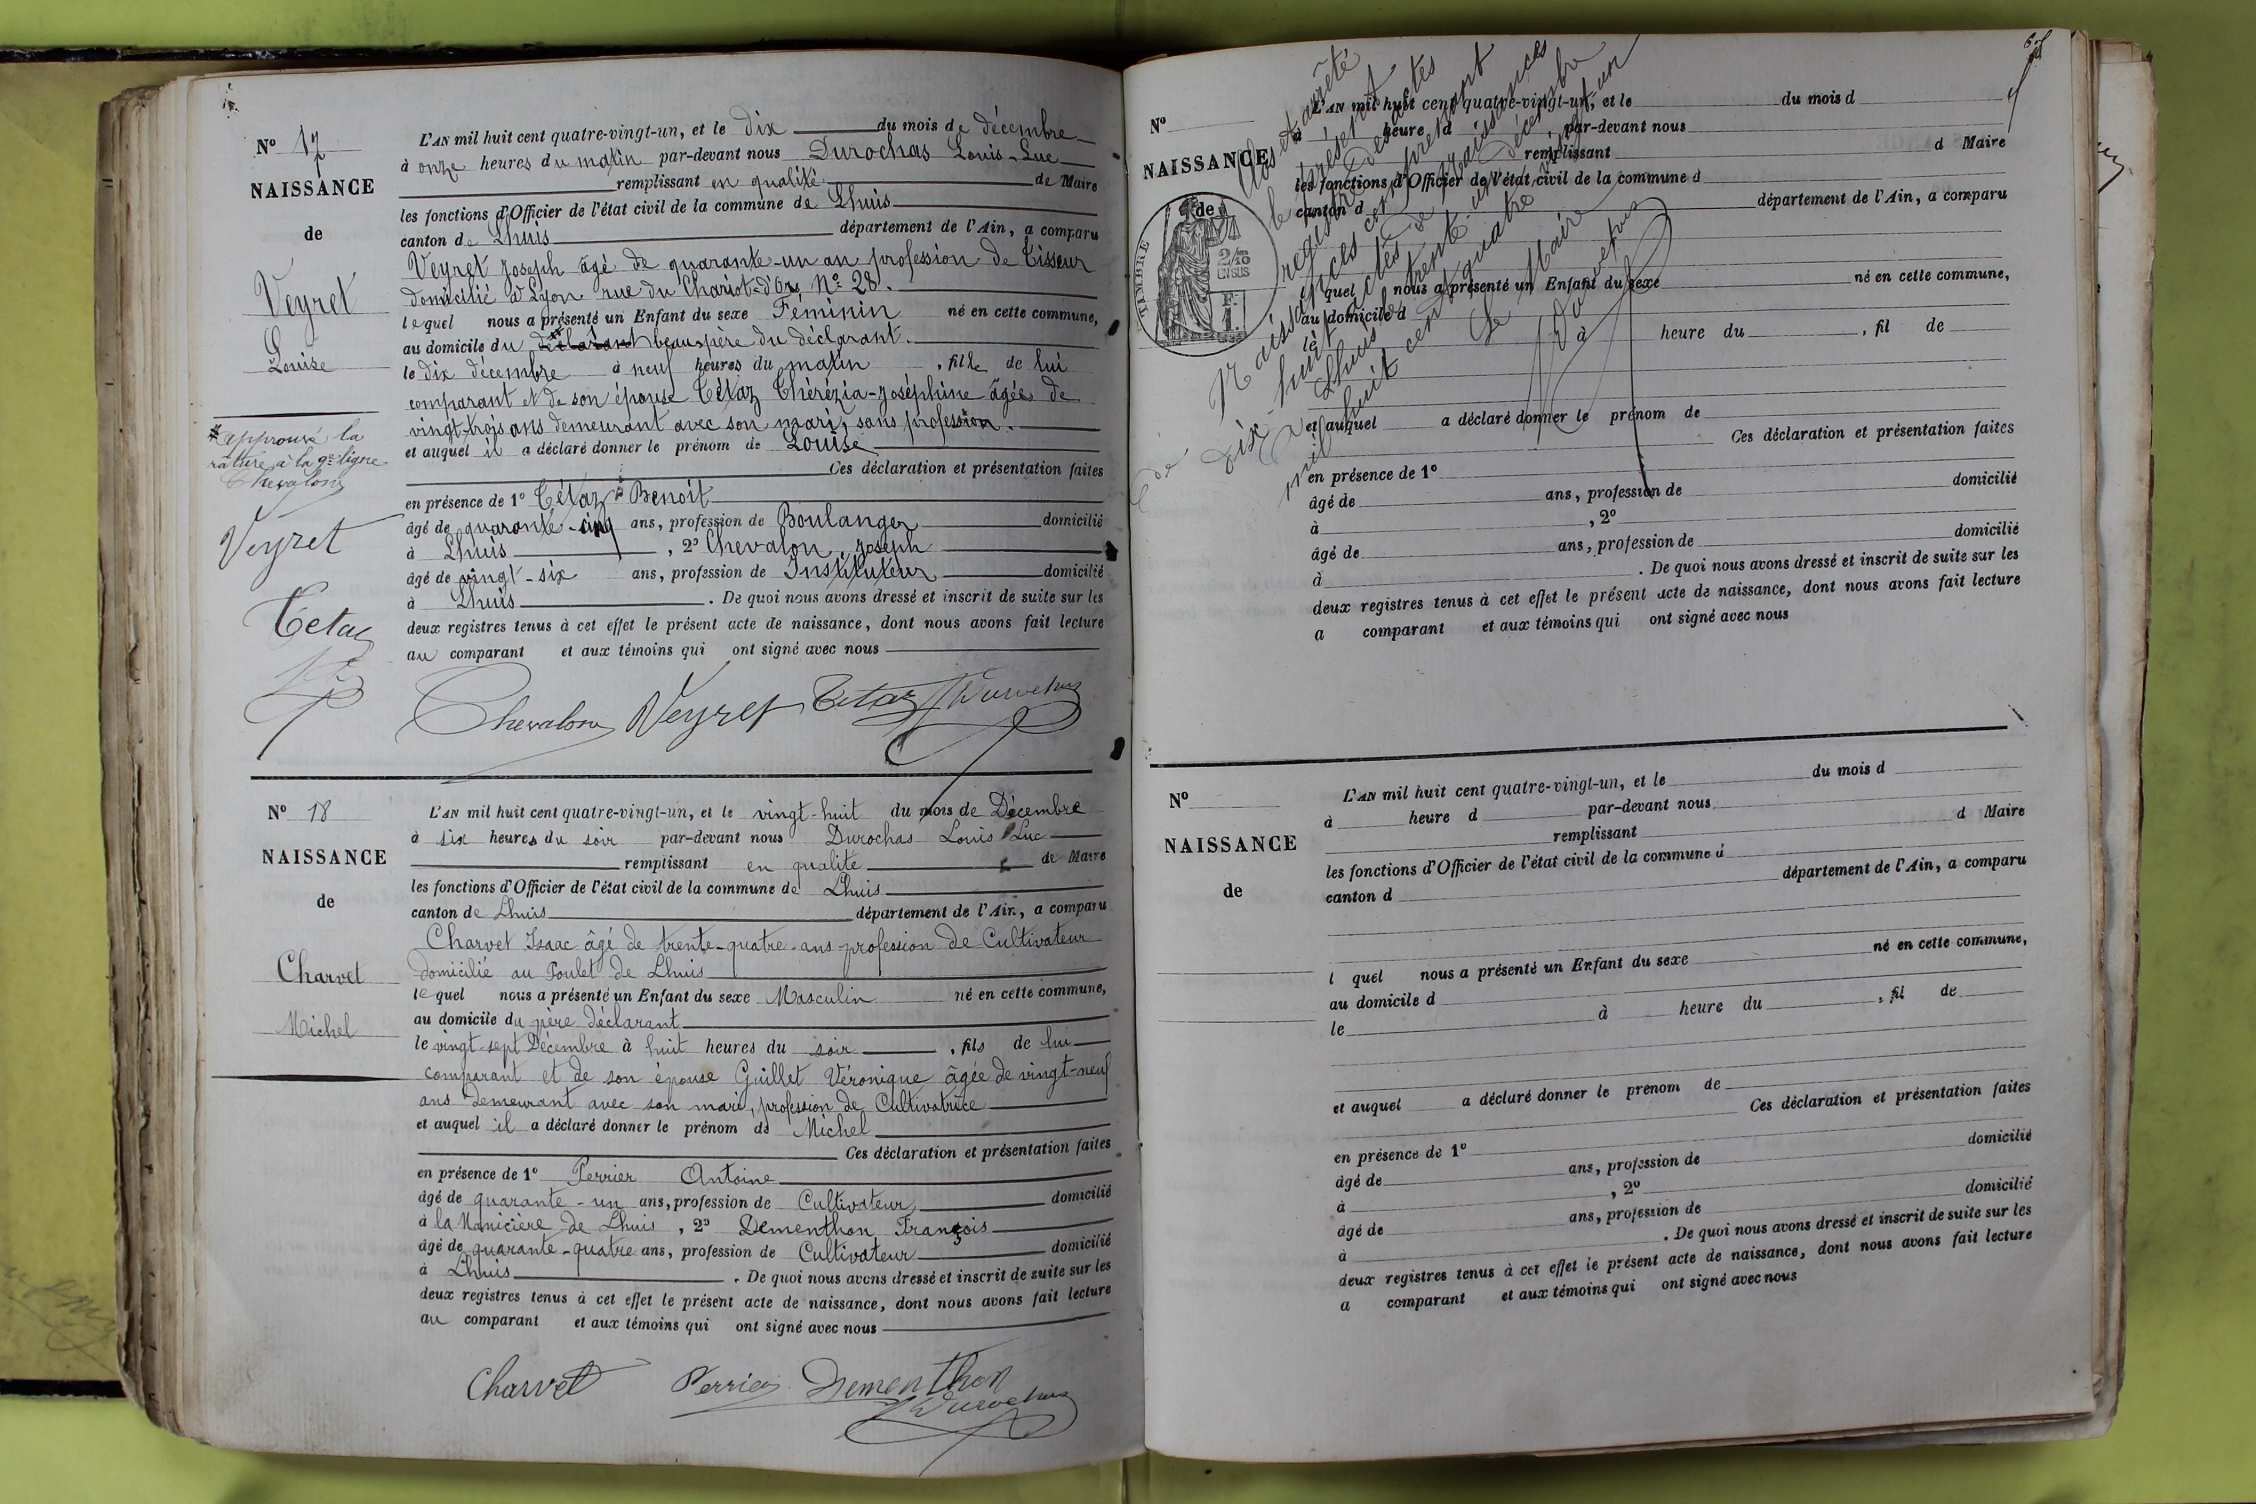 N° 17
NAISSANCE
de
Veyret
Louise
* approuvé la
rature à la 9e ligne
Chevalon
Veyret
Tetaz
L'AN mil huit cent quatre-vingt-un, et le dix du mois de décembre
à onze heures du matin par-devant nous Durochas Louis-Luc
remplissant en qualité de Maire
les fonctions d'Officier de l'état civil de la commune de Lhuis
canton de Lhuis département de l'Ain, a comparu
Veyret Joseph âgé de quarante-un an profession de Tisseur
domicilié à Lyon rue du Chariot-d'Or N° 28.
lequel nous a présenté un Enfant du sexe Féminin né en cette commune,
au domicile du déclarant beau-père du déclarant.
le dix décembre à neuf heures du matin, fille de lui
comparant et de son épouse Tétaz Thérézia-Joséphine âgée de
vingt-trois ans demeurant avec son mari, sans profession.
et auquel il a déclaré donner le prénom de Louise
Ces déclaration et présentation faites
en présence de 1° Tétaz Benoît
âgé de quarante-cinq ans, profession de Boulanger domicilié
à Lhuis, 2° Chevalon, Joseph
âgé de vingt-six ans, profession de Instituteur domicilié
à Lhuis. De quoi nous avons dressé et inscrit de suite sur les
deux registres tenus à cet effet le présent acte de naissance, dont nous avons fait lecture
au comparant et aux témoins qui ont signé avec nous
Chevalon Veyret Tetaz Durochas
N° 18
NAISSANCE
de
Charvet
Michel
L'AN mil huit cent quatre-vingt-un, et le vingt-huit du mois de Décembre
à six heures du soir par-devant nous Durochas Louis Luc
remplissant en qualité de Maire
les fonctions d'Officier de l'état civil de la commune de Lhuis
canton de Lhuis département de l'Ain, a comparu
Charvet Isaac âgé de trente-quatre-ans-profession de Cultivateur
domicilié au Poulet de Lhuis
lequel nous a présenté un Enfant du sexe Masculin né en cette commune,
au domicile du père déclarant
le vingt-sept Décembre à huit heures du soir, fils de lui
comparant et de son épouse Guillet Véronique âgée de vingt-neuf
ans demeurant avec son mari, profession de Cultivatrice
et auquel il a déclaré donner le prénom de Michel
Ces déclaration et présentation faites
en présence de 1° Perrier Antoine
âgé de quarante-un ans, profession de Cultivateur domicilié
à la Manicière de Lhuis, 2° Dementhon François
âgé de quarante-quatre ans, profession de Cultivateur domicilié
à Lhuis. De quoi nous avons dressé et inscrit de suite sur les
deux registres tenus à cet effet le présent acte de naissance, dont nous avons fait lecture
au comparant et aux témoins qui ont signé avec nous
Charvet Perrier Dementhon
Durochas
N°
NAISSANCE
de
TIMBRE
2/10
EN SUS
F.
1
Clos et arrêté
le présent
registre des actes de
Naissances comprenant
dix-huit actes de naissances
Lhuis le trente-un décembre
mil huit cent quatre-vingt-un
Le Maire
Durochas
L'AN mil huit cent quatre-vingt-un, et le du mois d
à heure d, par-devant nous
remplissant d Maire
les fonctions d'Officier de l'état civil de la commune d
canton d département de l'Ain, a comparu
l quel nous a présenté un Enfant du sexe né en cette commune,
au domicile d
le à heure du, fil de
et auquel a déclaré donner le prénom de
Ces déclaration et présentation faites
en présence de 1°
âgé de ans, profession de domicilié
à, 2°
âgé de ans, profession de domicilié
à. De quoi nous avons dressé et inscrit de suite sur les
deux registres tenus à cet effet le présent acte de naissance, dont nous avons fait lecture
a comparant et aux témoins qui ont signé avec nous
N°
NAISSANCE
de
L'AN mil huit cent quatre-vingt-un, et le du mois d
à heure d par-devant nous
remplissant d Maire
les fonctions d'Officier de l'état civil de la commune d
canton d département de l'Ain, a comparu
l quel nous a présenté un Enfant du sexe né en cette commune,
au domicile d
le à heure du, fil de
et auquel a déclaré donner le prénom de
Ces déclaration et présentation faites
en présence de 1°
âgé de ans, profession de domicilié
à, 2°
âgé de ans, profession de domicilié
à. De quoi nous avons dressé et inscrit de suite sur les
deux registres tenus à cet effet le présent acte de naissance, dont nous avons fait lecture
a comparant et aux témoins qui ont signé avec nous